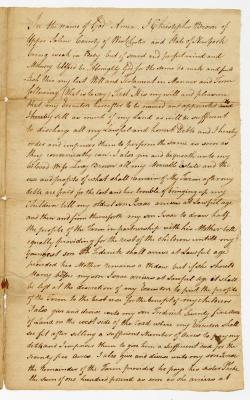 In the name of God Amen I Christopher Brown of
Upper Salem County of West Chester and State of New york
being weak in Body but of sound and perfect mind and
Memory blessed be Almighty God for the same do make and pub
lish this my last Will and Testament in Manner and Form
following (that is to say) First It is my will and pleasure
that my Executors hereafter to be named and appointed
sell as much of my Land as will be sufficient
to discharge all my Lawfull and honest Debts and I hereby
order and impower them to perform the same as soon as
they conveniently can I also give and bequeath unto my
beloved Wife Lucy Brown all my Moveable estate and the
use and profits of what shall remain of my Farm after my
debts are paid for the and bringing up my
Children till my oldest son Isaac arrives at Lawful age
and then and from thenceforth my son Isaac to draw half
the profits of the Farm in partnership with his Mother both
equally providing for the rest of the children untill my
youngest son Frederick shall arrive at Lawful age
provided his Mother remains a Widow but if she should
Marry before my son Isaac arrives at Lawful age
be left at the discretion of my Executors to put the profits
of the Farm to the best use for the benefit of my children
I also give and devise unto my son Frederick Twenty five Acres
of Land on the west side of the road where my Executors shall
see fit after selling a Sufficient Number of Acres to pay my
Debts and I impower them to give him a Sufficient for the
Twenty five Acres I also give and devise unto my son Isaac
the remainder of the Farm provided he pays his sister
the sum of one hundred pound as soon as she arrives at